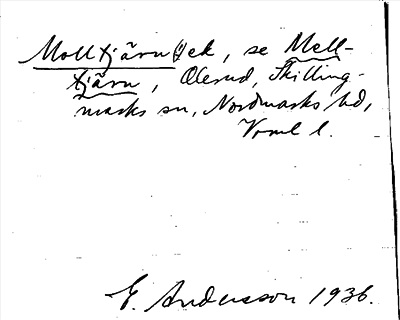 Molltjärn(s)ek, se Mell-
tjärn, Olerud, Skilling-
marks sn, Nordmarks hd,
Verml l.
E. Andersson 1936.